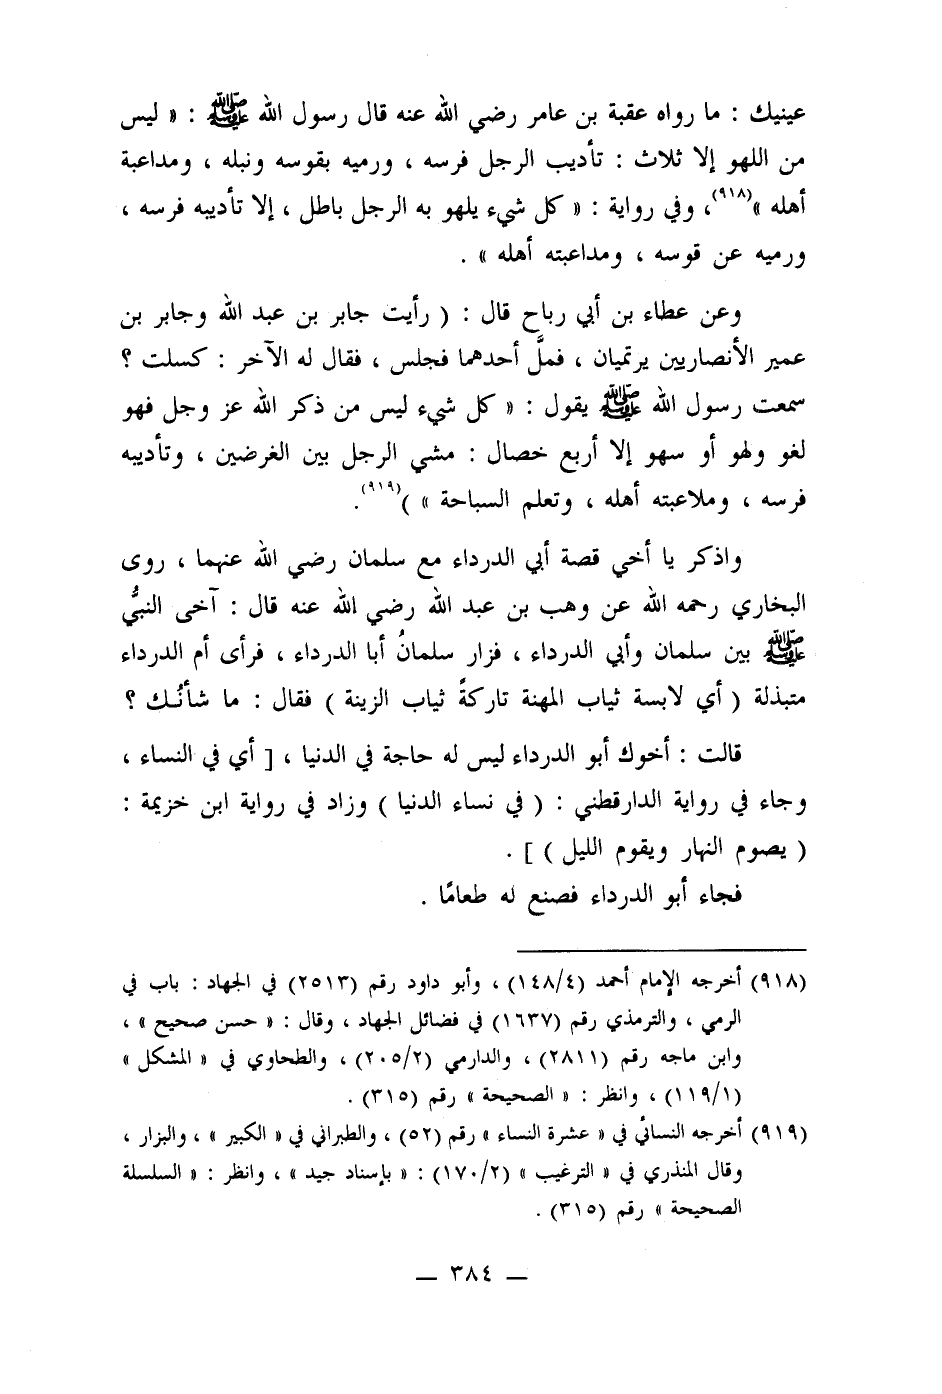 عينيك : ما رواه عقبة بن عامر رضي الله عنه قال رسول الله ﷺ : « ليس
من اللهو إلا ثلاث : تأديب الرجل فرسه ، ورميه بقوسه ونبله ، ومداعبة
أهله »(٩١٨)، وفي رواية : « كل شيء يلهو به الرجل باطل ، إلا تأديبه فرسه ،
ورميه عن قوسه ، ومداعبته أهله » .
وعن عطاء بن أبي رباح قال : ( رأيت جابر بن عبد الله وجابر بن
عمير الأنصاريين يرتميان ، فملَّ أحدهما فجلس ، فقال له الآخر : كسلت ؟
سمعت رسول الله ﷺ يقول : « كل شيء ليس من ذكر الله عز وجل فهو
لغو ولهو أو سهو إلا أربع خصال : مشي الرجل بين الغرضين ، وتأديبه
فرسه ، وملاعبته أهله ، وتعلم السباحة » )(٩١٩).
واذكر يا أخي قصة أبي الدرداء مع سلمان رضي الله عنهما ، روى
البخاري رحمه الله عن وهب بن عبد الله رضي الله عنه قال : آخى النبيُّ
ﷺ بين سلمان وأبي الدرداء ، فزار سلمانُ أبا الدرداء ، فرأى أم الدرداء
متبذلة ( أي لابسة ثياب المهنة تاركةً ثياب الزينة ) فقال : ما شأنُك ؟
قالت : أخوك أبو الدرداء ليس له حاجة في الدنيا ، [ أي في النساء ،
وجاء في رواية الدارقطني : ( في نساء الدنيا ) وزاد في رواية ابن خزيمة :
( يصوم النهار ويقوم الليل ) ] .
فجاء أبو الدرداء فصنع له طعامًا .
(٩١٨) أخرجه الإمام أحمد (١٤٨/٤) ، وأبو داود رقم (٢٥١٣) في الجهاد : باب في
الرمي ، والترمذي رقم (١٦٣٧) في فضائل الجهاد ، وقال : « حسن صحيح » ،
وابن ماجه رقم (٢٨١١) ، والدارمي (٢٠٥/٢) ، والطحاوي في « المشكل »
(١١٩/١) ، وانظر : « الصحيحة » رقم (٣١٥) .
(٩١٩) أخرجه النسائي في « عشرة النساء » رقم (٥٢) ، والطبراني في « الكبير » ، والبزار ،
وقال المنذري في « الترغيب » (١٧٠/٢) : « بإسناد جيد » ، وانظر : « السلسلة
الصحيحة » رقم (٣١٥) .
— ٣٨٤ —